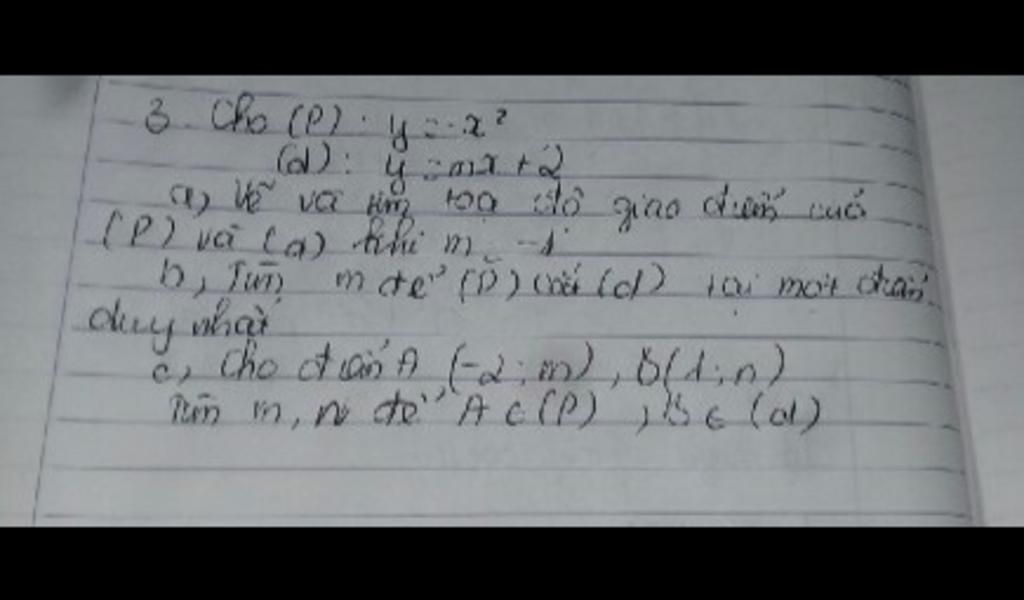 3. Cho (P): y = -x²
(d): y = mx + 2
a, Vẽ và tìm toạ độ giao điểm của
(P) và (d) khi m = -1
b, Tìm m để (P) cắt (d) tại một điểm
duy nhất
c, Cho điểm A (-2; m), B(1; n)
Tìm m, n để A ∈ (P), B ∈ (d)